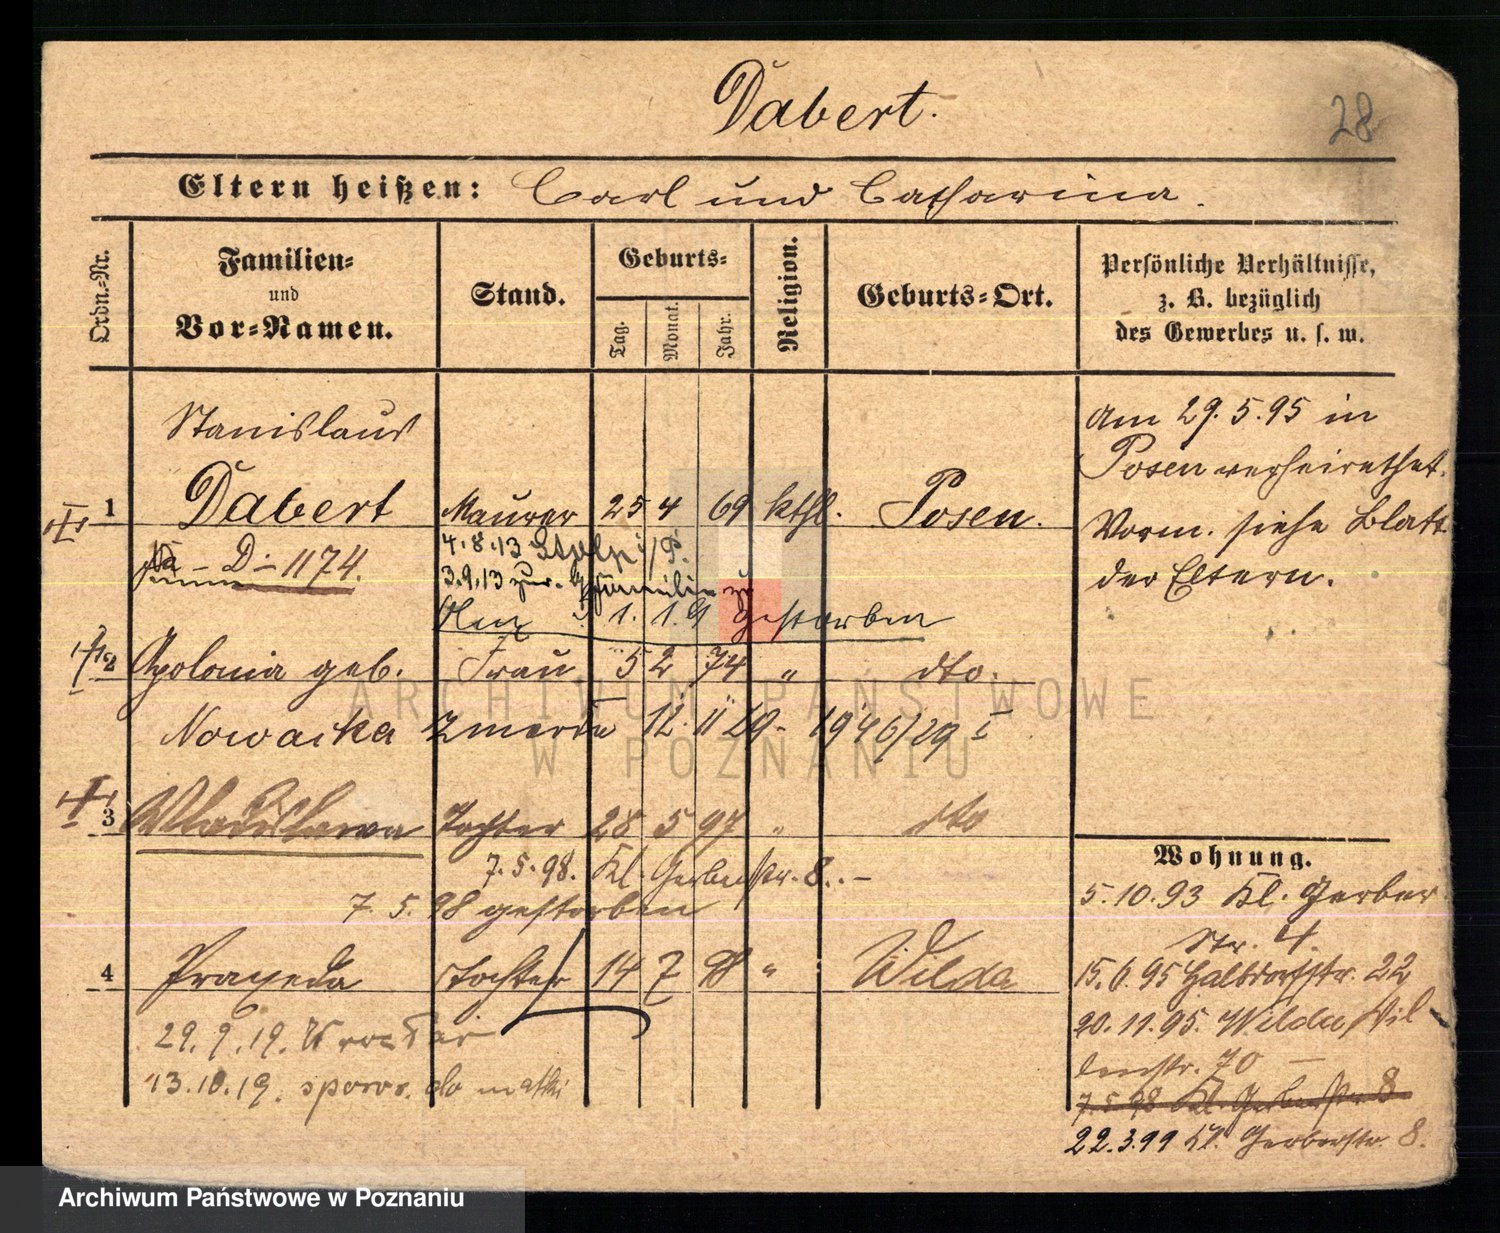 Dabert.
28
Eltern heißen: Carl und Catharina.
Ordn.-Nr.
Familien-
und
Vor-Namen.
Stand.
Geburts-
Tag.
Monat.
Jahr.
Religion.
Geburts-Ort.
Persönliche Verhältnisse,
z. B. bezüglich
des Gewerbes u. s. w.
Stanislaus
1 Dabert Maurer 25 4 69 kthl. Posen.
D - 1174.
4.8.13
3.9.13 zur. Familie
1. 1. gestorben
2 Apolonia geb. Frau 5 2 74 " dto.
Nowacka zmarła 12. 11 29 - 1946/29 I
3 Wladislawa Tochter 28 5 97 " dto
7.5.98. Kl. Gerberstr. 8. -
7.5.98 gestorben
4 Praxeda Tochter 14 7 98 " Wilda
29.9.19.
13.10.19. sporor. do matki
am 29.5.95 in
Posen verheirathet.
Vorm. siehe Blatt
der Eltern.
Wohnung.
5.10.93 Kl. Gerber
Str. 4.
15.6.95 Halbdorfstr. 22
20.11.95. Wilda, Wil
denstr. 70 -
7.5.98 Kl. Gerberstr. 8
22.3.99 Kl. Gerberstr. 8.
ARCHIWUM PAŃSTWOWE
W POZNANIU
Archiwum Państwowe w Poznaniu